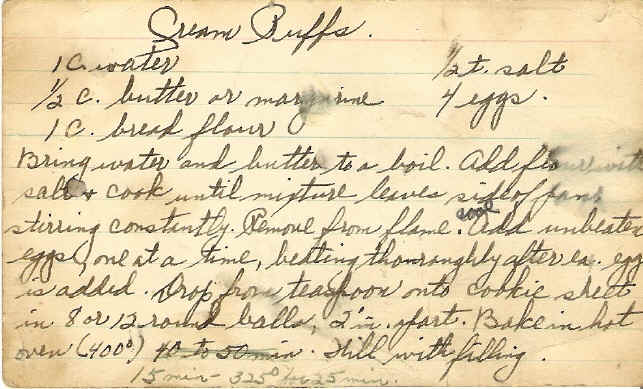 Cream Puffs.
1 c. water 1/2 t. salt
1/2 c. butter or margarine 4 eggs.
1 c. bread flour
Bring water and butter to a boil. Add flour with
salt & cook until mixture leaves side of pan,
stirring constantly. Remove from flame. cool Add unbeaten
eggs, one at a time, beating thoroughly after ea. egg
is added. Drop from teaspoon onto cookie sheet
in 8 or 12 round balls, 2 in. apart. Bake in hot
oven (400°) 40 to 50 min. Fill with filling.
15 min - 325° for 25 min.